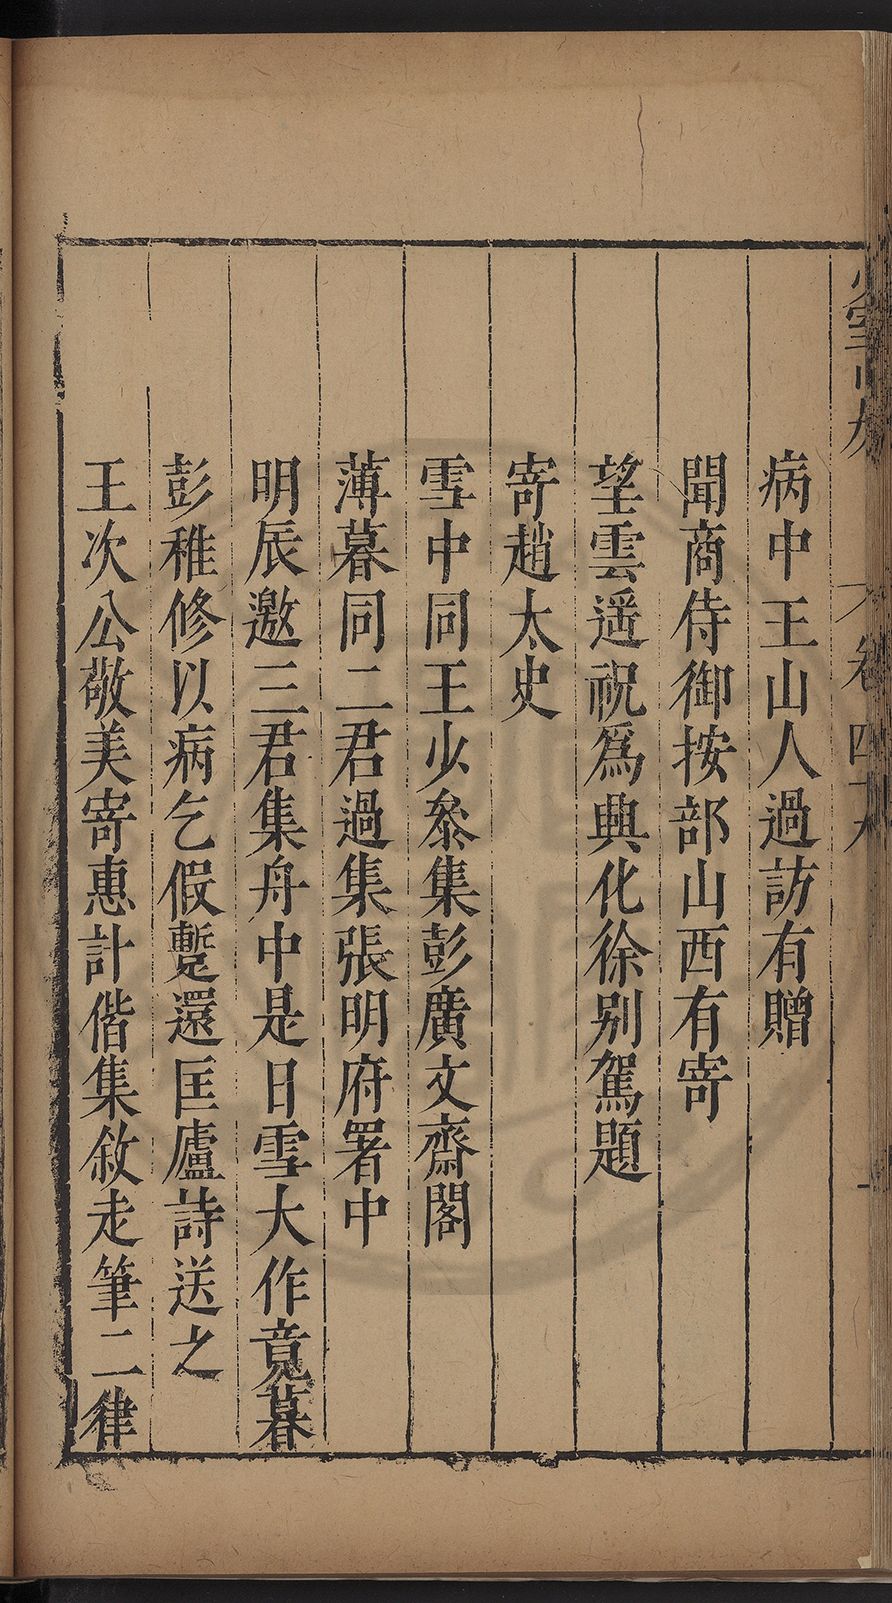 卷四
病中王山人過訪有贈
聞商侍御按部山西有寄
望雲遥祝爲興化徐别駕題
寄趙太史
雪中同王少叅集彭廣文齋閣
薄暮同二君過集張明府署中
明辰邀三君集舟中是日雪大作竟暮
彭稚修以病乞假蹔還匡廬詩送之
王次公敬美寄惠計偕集敘走筆二律